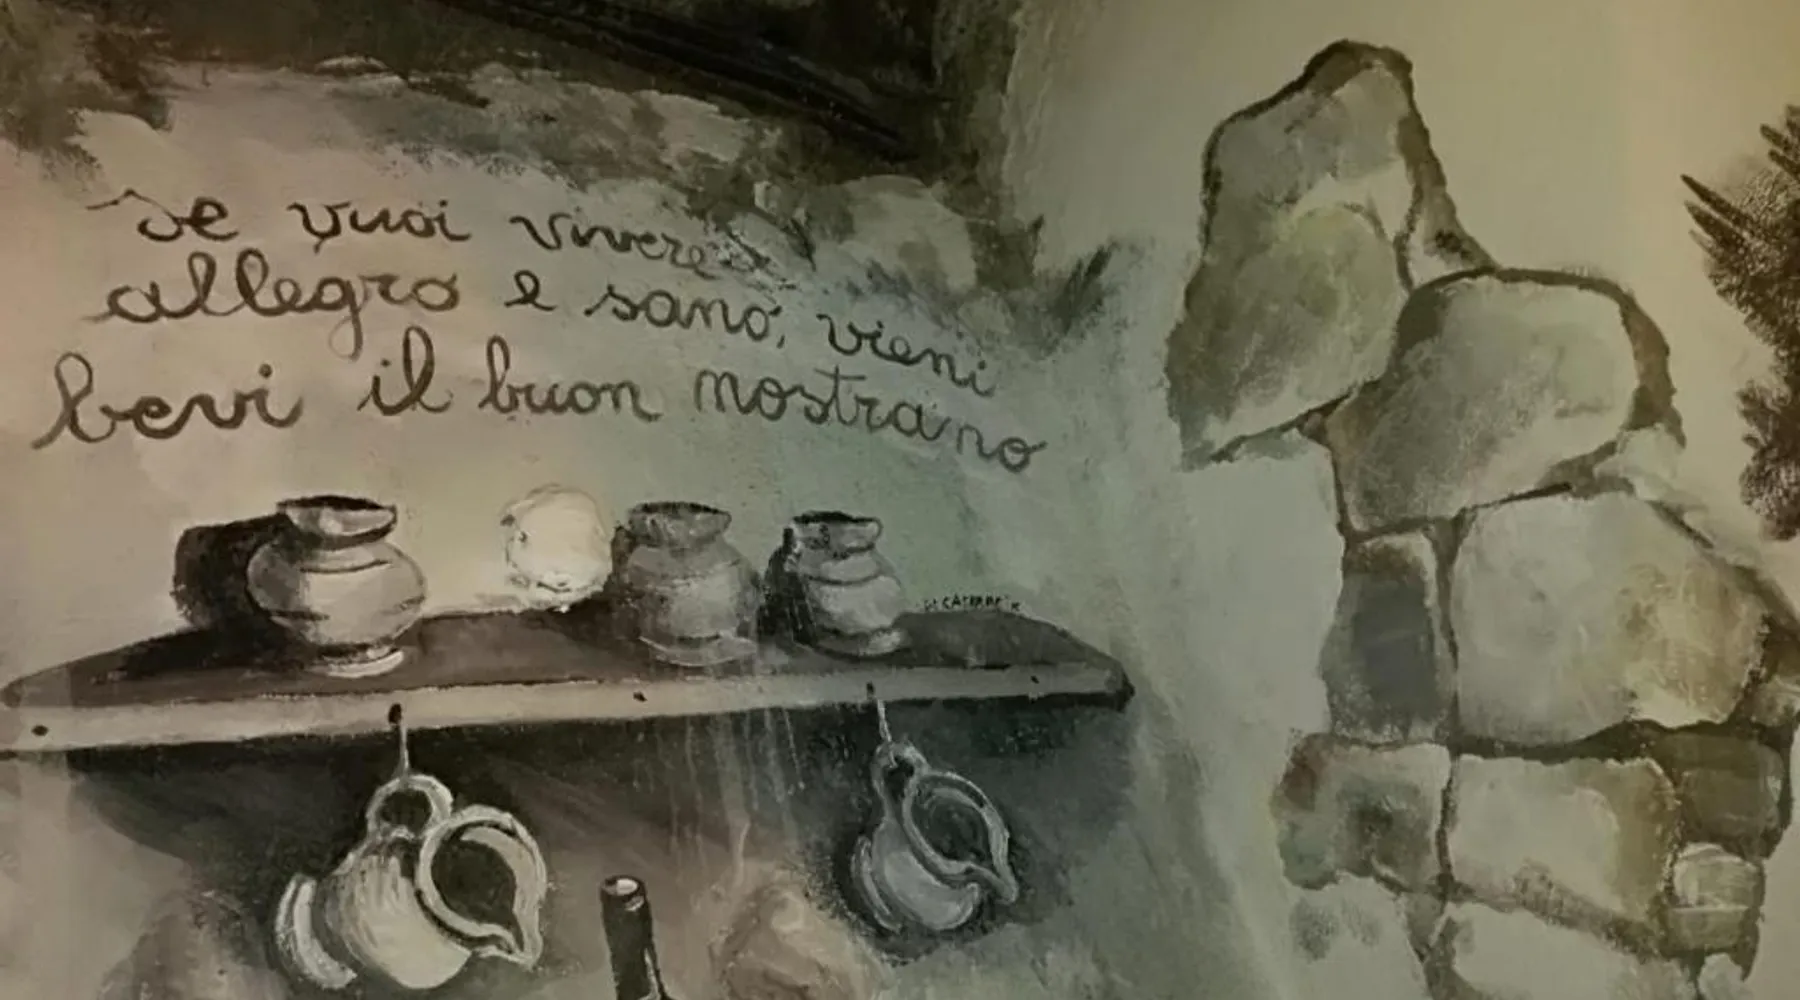 Se vuoi vivere
allegro e sano, vieni
bevi il buon nostrano